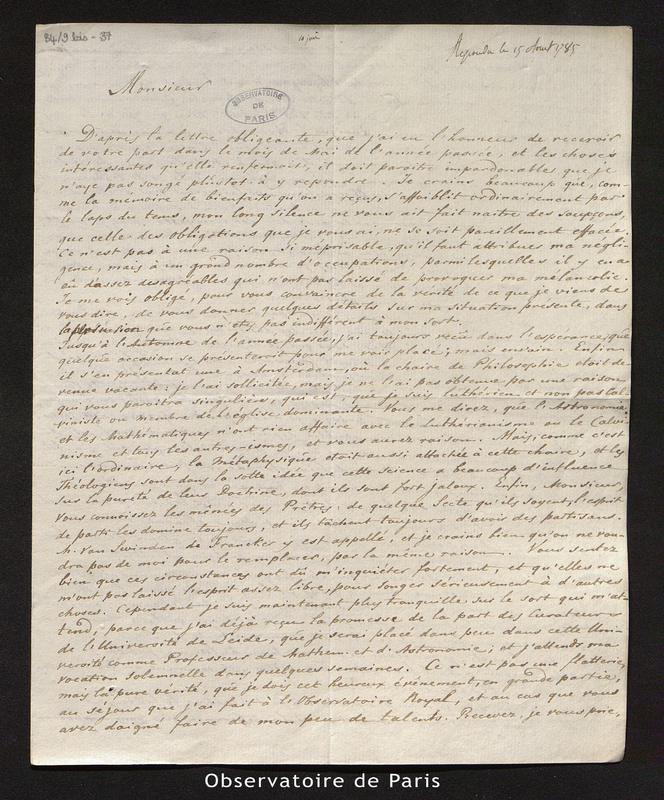 84/9 bis - 37
10 juin
Repondu le 15 Aout 1785
Monsieur
OBSERVATOIRE
DE
PARIS
D'après la lettre obligeante, que j'ai eu l'honneur de recevoir
de votre part dans le mois de Mai de l'année passée, et les choses
intéressantes qu'elle renfermoit, il doit paroitre impardonable que je
n'aye pas songé plustot à y repondre. Je crains beaucoup que, com-
me la memoire de bienfaits qu'on a reçus, s'affoiblit ordinairement par
le laps du tems, mon long silence ne vous ait fait naitre des soupçons,
que celle des obligations que je vous ai, ne se soit pareillement effacée.
Ce n'est pas à une raison si méprisable, qu'il faut attribuer ma négli-
gence, mais à un grand nombre d'occupations, parmi lesquelles il y en a
eû d'assez desagréables qui n'ont pas laissé de provoquer ma mélancolie.
Je me vois obligé, pour vous convaincre de la verité de ce que je viens de
vous dire, de vous donner quelques détails sur ma situation présente, dans
la persuasion que vous n'etes pas indifférent à mon sort.
Jusqu'à l'Automne de l'année passée, j'ai toujours vécu dans l'esperance, que
quelque occasion se présenteroit pour me voir placé; mais en vain. Enfin
il s'en présentat une à Amsterdam, où la chaire de Philosophie étoit de-
venue vacante: je l'ai sollicitée, mais je ne l'ai pas obtenue par une raison
qui vous paroitra singuliere, qui est, que je suis luthérien et non pas Cal-
viniste ou membre de l'église dominante. Vous me direz, que l'Astronomie
et les Mathématiques n'ont rien affaire avec le Luthéranisme ou le Calvi-
nisme et tous les autres nismes, et vous aurez raison. Mais, comme c'est
ici l'ordinaire, la Métaphysique etoit aussi attachée à cette chaire, et les
Théologiens sont dans la sotte idée que cette Science a beaucoup d'influence
sur la pureté de leurs Doctrine, dont ils sont fort jaloux. Enfin, Monsieur,
vous connoissez les menées des Prêtres, de quelque Secte qu'ils soyent, l'esprit
de parti les domine toujours, et ils tâchent toujours d'avoir des partisans.
M. van Swinden de Franeker y est appellé: et je crains bien qu'on ne vou-
dra pas de moi pour le remplacer, par la même raison. Vous sentez
bien que ces circonstances ont dû m'inquiéter fortement, et qu'elles ne
m'ont pas laissé l'esprit assez libre, pour songer sérieusement à d'autres
choses. Cependant je suis maintenant plus tranquille sur le sort qui m'at-
tend, parce que j'ai déjà reçu la promesse de la part des Curateurs
de l'Université de Leide, que je serai placé dans peu dans cette Uni-
versité comme Professeur de Mathem. et d'Astronomie, et j'attends ma
vocation solemnelle dans quelques semaines. Ce n'est pas une flatterie,
mais la pure verité, que je dois cet heureux événement, en grande partie,
au séjour que j'ai fait à l'Observatoire Royal, et au cas que vous
avez daigné faire de mon peu de talents. Recevez, je vous prie,
Observatoire de Paris